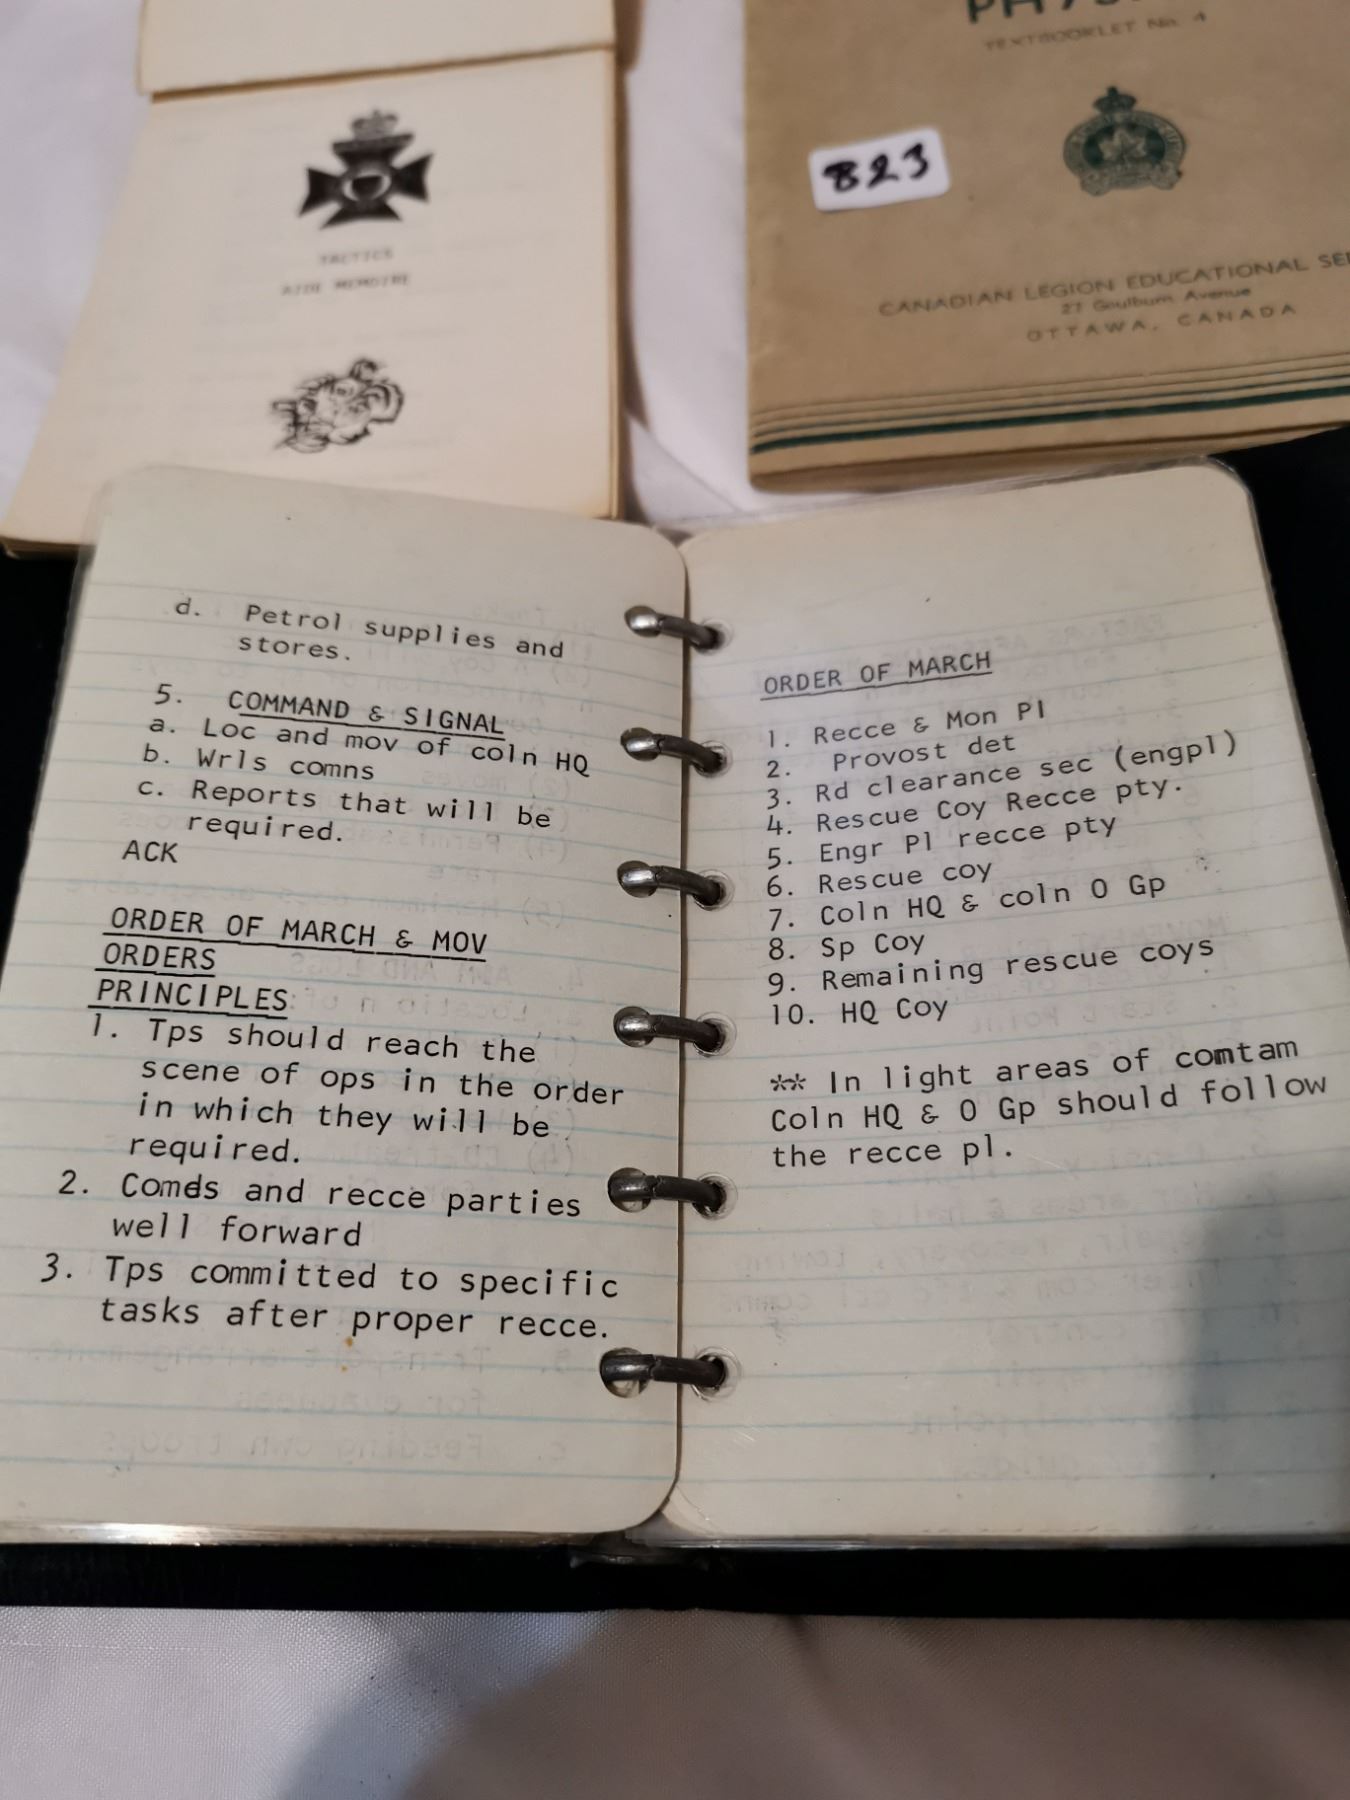 TACTICS
AIDE MEMOIRE
TEXTBOOKLET No. 4
823
CANADIAN LEGION EDUCATIONAL
27 Goulburn Avenue
OTTAWA, CANADA
d. Petrol supplies and
stores.
5. COMMAND & SIGNAL
a. Loc and mov of coln HQ
b. Wrls comns
c. Reports that will be
required.
ACK
ORDER OF MARCH & MOV
ORDERS
PRINCIPLES
1. Tps should reach the
scene of ops in the order
in which they will be
required.
2. Comds and recce parties
well forward
3. Tps committed to specific
tasks after proper recce.
ORDER OF MARCH
1. Recce & Mon Pl
2. Provost det
3. Rd clearance sec (engpl)
4. Rescue Coy Recce pty.
5. Engr Pl recce pty
6. Rescue coy
7. Coln HQ & coln O Gp
8. Sp Coy
9. Remaining rescue coys
10. HQ Coy
** In light areas of comtam
Coln HQ & O Gp should follow
the recce pl.